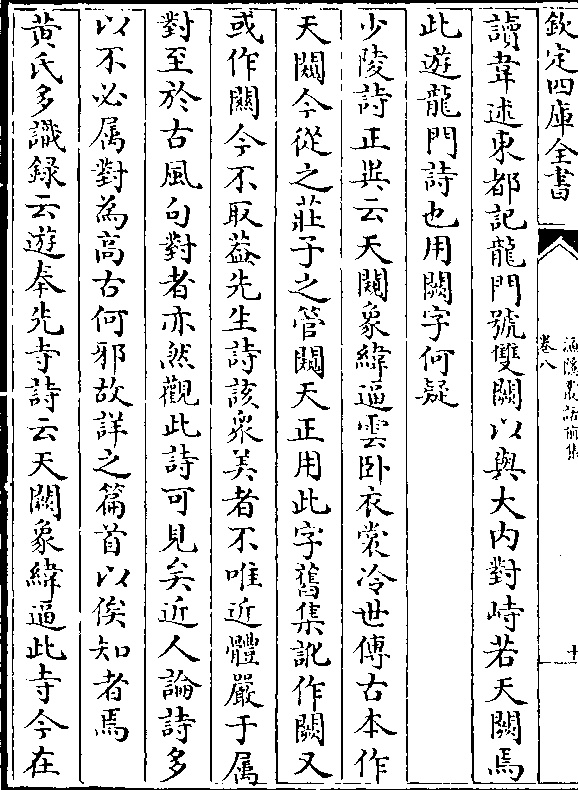 欽定四庫全書
漁隱叢話前集
卷八
十
讀韋述東都記龍門號雙闕以與大内對峙若天闕焉
此遊龍門詩也用闕字何疑
少陵詩正異云天闚象緯逼雲卧衣裳冷世傳古本作
天闚今從之莊子之管闚天正用此字舊集訛作闕又
或作關今不取葢先生詩該衆美者不唯近體嚴于属
對至於古風句對者亦然觀此詩可見矣近人論詩多
以不必属對為高古何邪故詳之篇首以俟知者焉
黄氏多識録云遊奉先寺詩云天闕象緯逼此寺今在